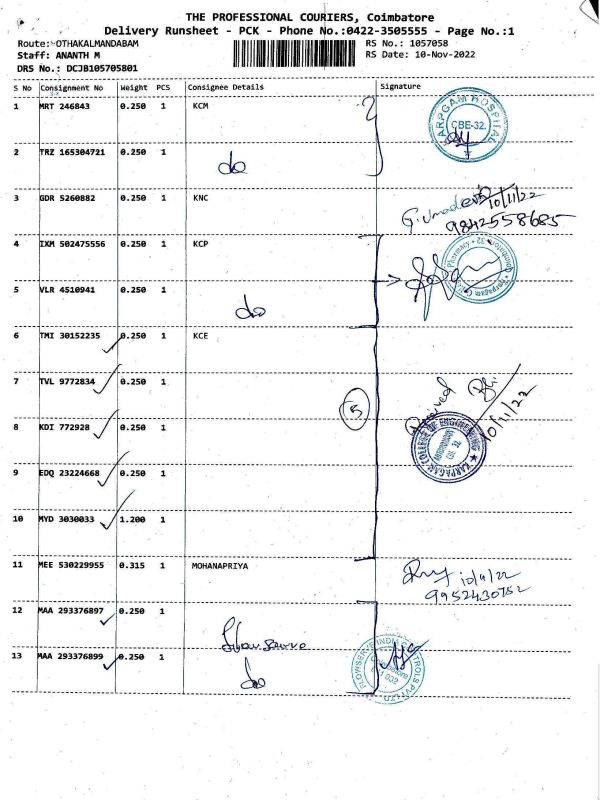 THE PROFESSIONAL COURIERS, Coimbatore
Delivery Runsheet - PCK - Phone No.:0422-3505555 - Page No.:1
Route: OTHAKALMANDABAM RS No.: 1057058
Staff: ANANTH M RS Date: 10-Nov-2022
DRS No.: DCJB105705801
S No Consignment No Weight PCS Consignee Details Signature
1 MRT 246843 0.250 1 KCM
KARPGAM HOSPITAL CBE-32.
2 TRZ 165304721 0.250 1 do
3 GDR 5260882 0.250 1 KNC
G. Umadevi 10/11/22
9842558685
4 IXM 502475556 0.250 1 KCP
5 VLR 4510941 0.250 1 do
6 TMI 30152235 0.250 1 KCE
7 TVL 9772834 0.250 1
5
Received
10/11/22
8 KDI 772928 0.250 1
KARPAGAM COLLEGE OF ENGINEERING
CBE 32.
9 EDQ 23224668 0.250 1
10 MYD 3030033 1.200 1
11 MEE 530229955 0.315 1 MOHANAPRIYA
10/11/22
9952430752
12 MAA 293376897 0.250 1
Flowserve
13 MAA 293376899 0.250 1 do
FLOWSERVE INDIA CONTROLS PVT LTD